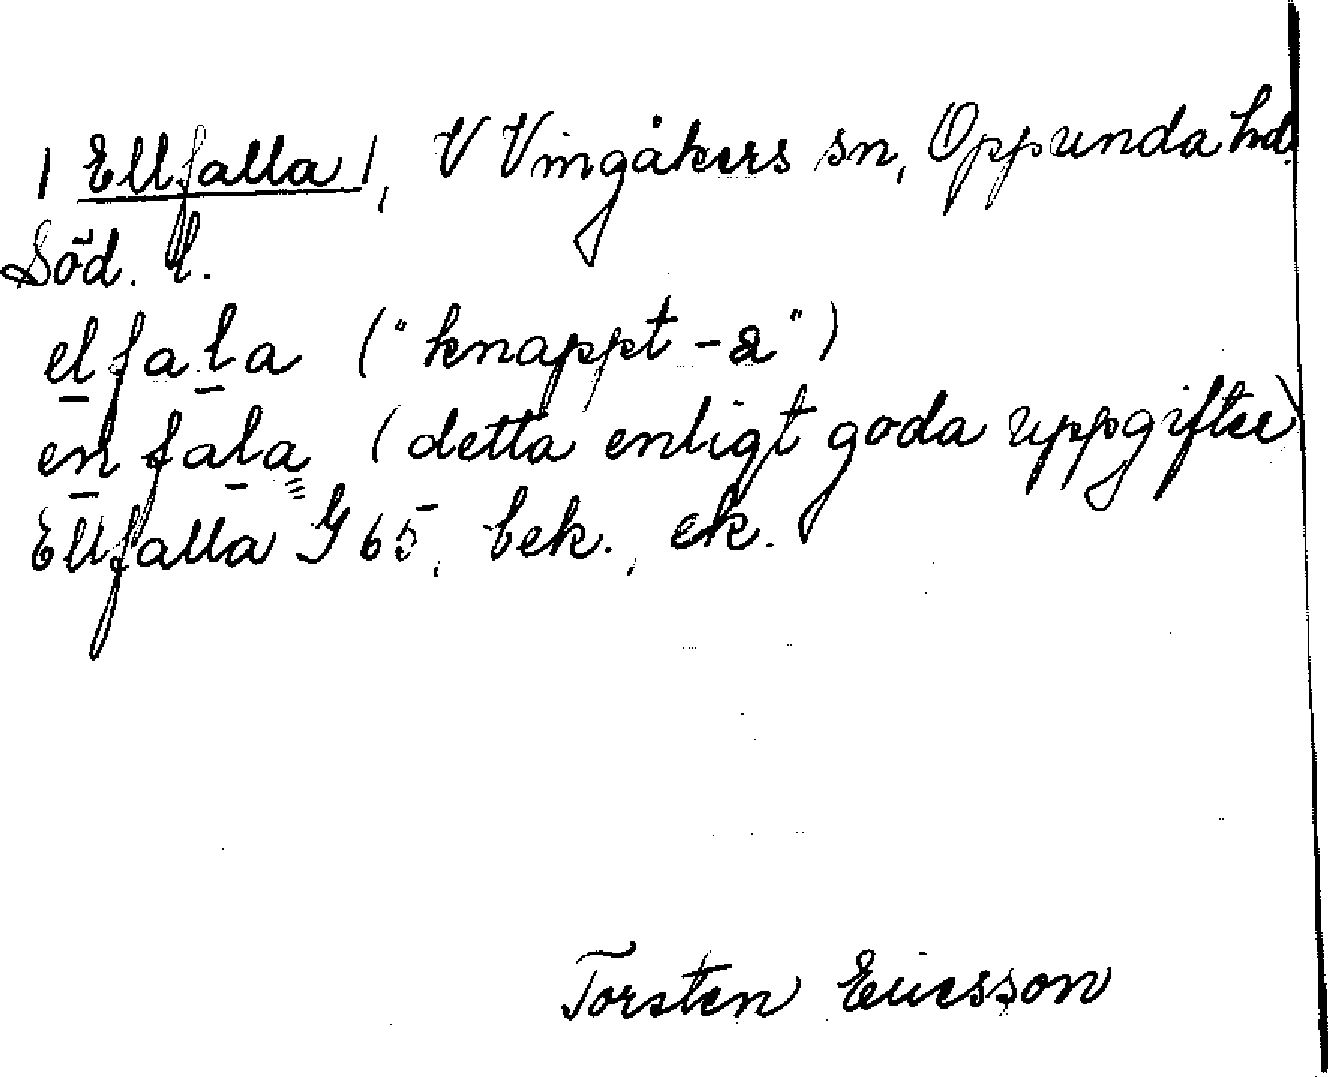 | Ellfalla |, V Vingåkers sn, Oppunda hd.
Söd. l.
elfala ("knappt -a")
enfala (detta enligt goda uppgifter)
Ellfalla G 65, bek., ek.
Torsten Ericsson